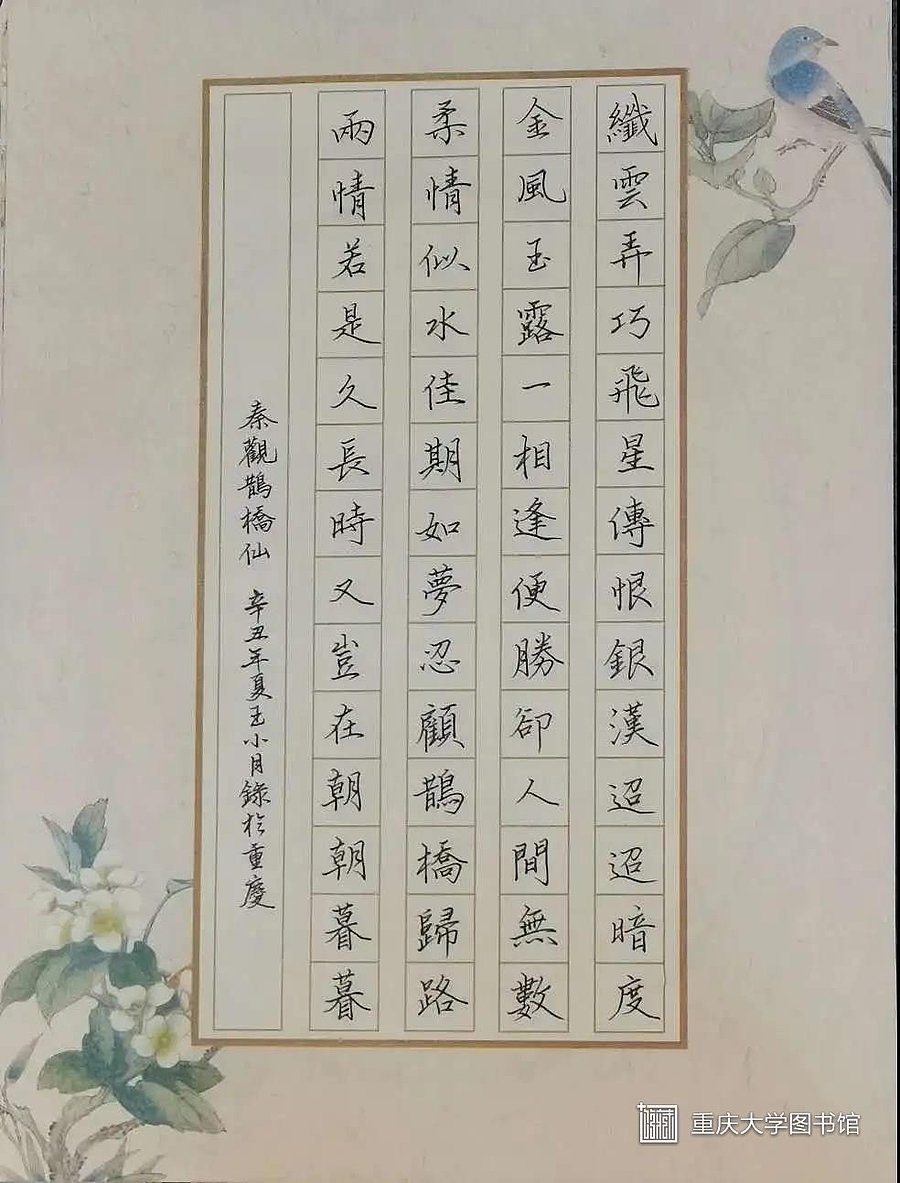 纖雲弄巧飛星傳恨銀漢迢迢暗度
金風玉露一相逢便勝卻人間無數
柔情似水佳期如夢忍顧鵲橋歸路
兩情若是久長時又豈在朝朝暮暮
秦觀鵲橋仙 辛丑年夏王小月錄於重慶
重庆大学图书馆